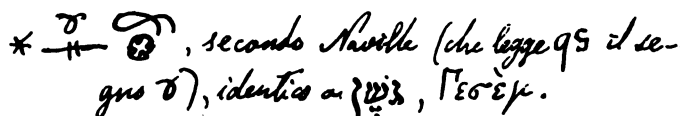 * , secondo Naville (che legge qs il se-
gno ), identico a גשן, Γεσὲμ.